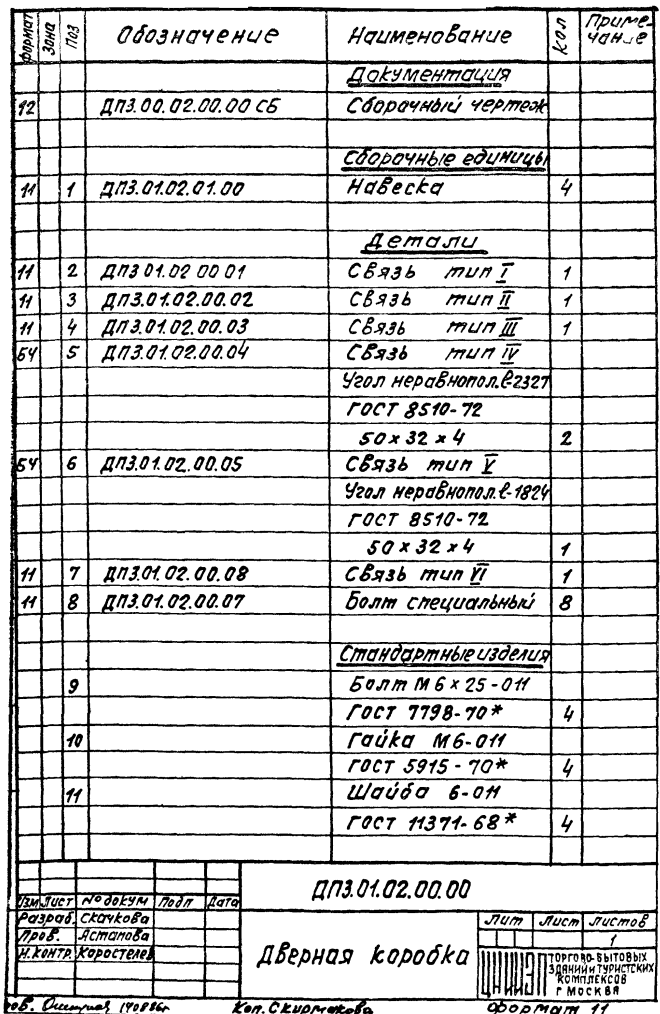 формат Зона Поз Обозначение Наименование Кол Примечание
Документация
12 ДП3.00.02.00.00 СБ Сборочный чертеж
Сборочные единицы
11 1 ДП3.01.02.01.00 Навеска 4
Детали
11 2 ДП3 01.02 00 01 Связь тип I 1
11 3 ДП3.01.02.00.02 Связь тип II 1
11 4 ДП3.01.02.00.03 Связь тип III 1
БЧ 5 ДП3.01.02.00.04 Связь тип IV
Угол неравнопол. ℓ-2327
ГОСТ 8510-72
50 х 32 х 4 2
БЧ 6 ДП3.01.02.00.05 Связь тип V
Угол неравнопол. ℓ-1824
ГОСТ 8510-72
50 х 32 х 4 1
11 7 ДП3.01.02.00.08 Связь тип VI 1
11 8 ДП3.01.02.00.07 Болт специальный 8
Стандартные изделия
9 Болт М 6 х 25-011
ГОСТ 7798-70* 4
10 Гайка М6-011
ГОСТ 5915-70* 4
11 Шайба 6-011
ГОСТ 11371-68* 4
ДП3.01.02.00.00
Изм Лист № докум Подп Дата
Разраб. Скачкова
Пров. Астапова
Н.контр. Коростелев
Дверная коробка
Лит Лист Листов
1
ЦНИИЭП ТОРГОВО-БЫТОВЫХ
ЗДАНИЙ И ТУРИСТСКИХ
КОМПЛЕКСОВ
Г МОСКВА
Коп. Скурмакова Формат 11